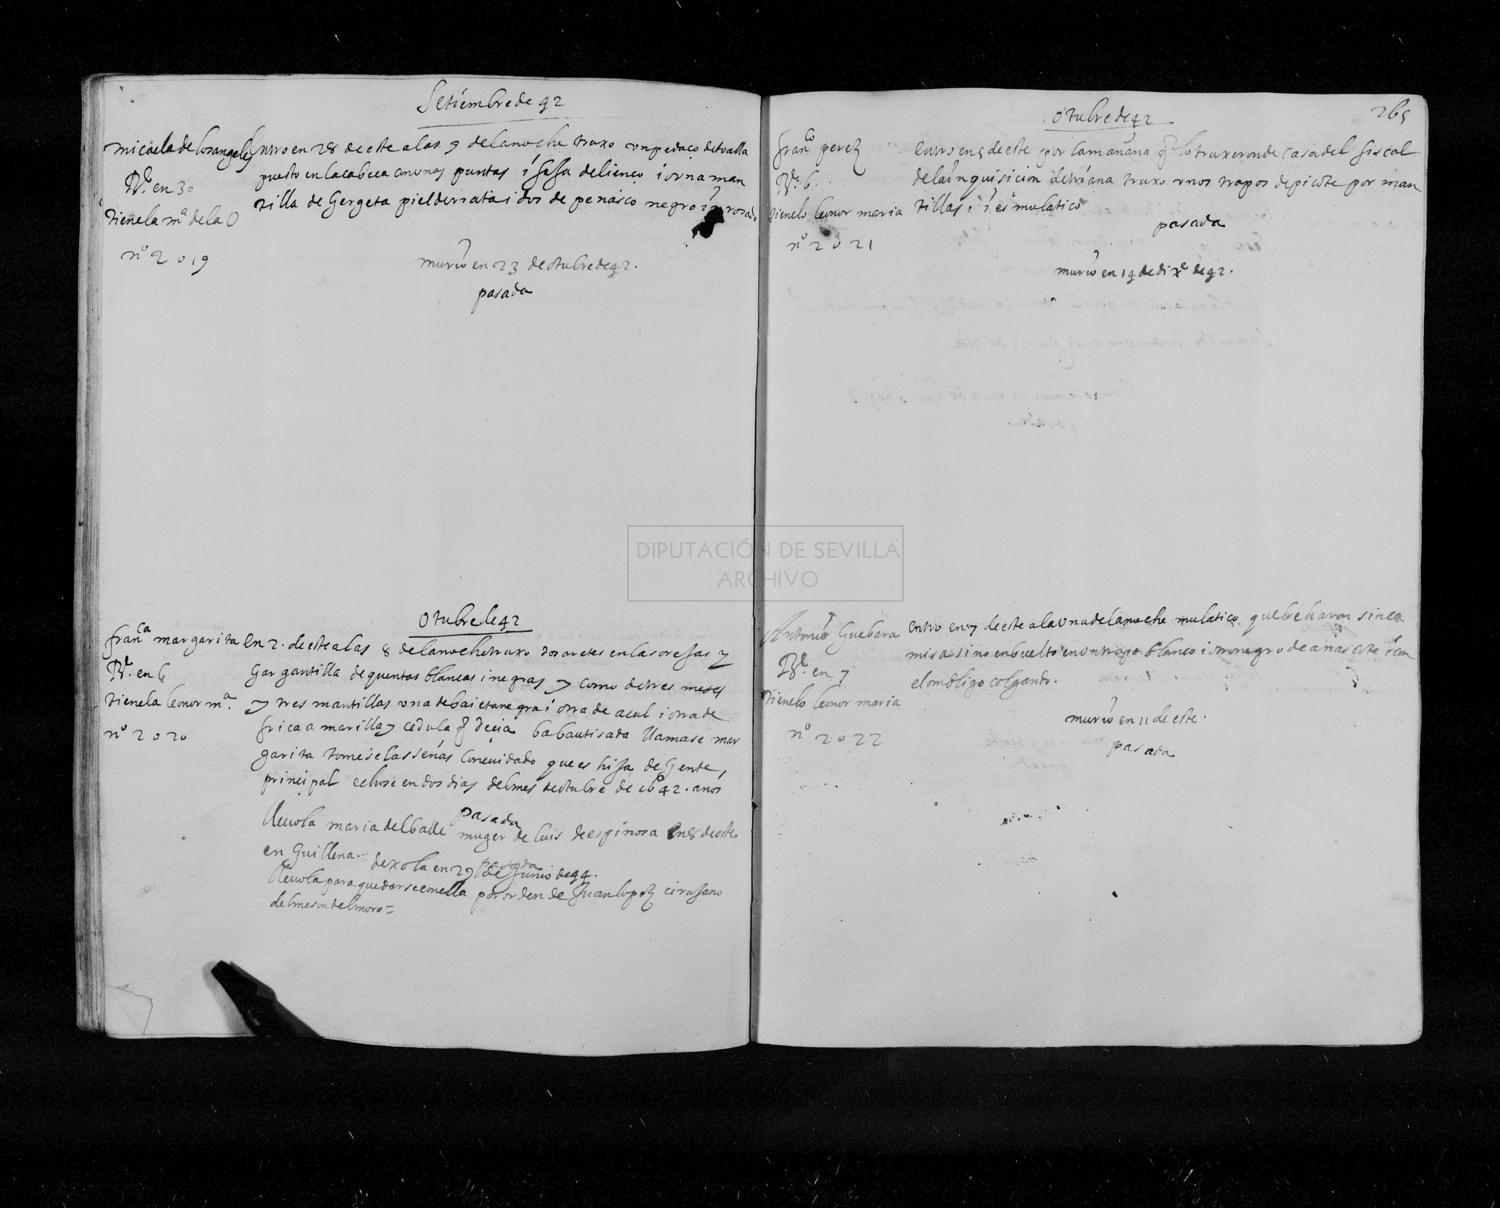 Setiembre de 42
micaela de los angeles
Ba. en 30
tienela ma de la O
no 2019
entro en 28 de este a las 9 de la noche truxo un pedaço de toalla
puesto en la cabeca con unas puntas i faja de lienço i orna man
tilla de gergeta piel de rrata i dos de peñasco negro i rosado
murio en 23 de otubre de 42.
pasada
Otubre de 42
franca margarita
Ba. en 6
tienela leonor ma.
no 2020
en 2. de este a las 8 de la noche truxo dos aretes en las orejas y
gargantilla de quentas blancas i negras y como de tres meses
y tres mantillas una de baieta negra i otra de açul i otra de
frisa amarilla y cedula q decia ba bautisada llamase mar
garita tomese las señas con cuidado que es hija de gente
principal en dos dias del mes de otubre de 1642. años
pasada
lleuola maria del balle muger de luis de espinosa en 8 de este
en guillena = dexola en 29 de junio de 44.
pasada
lleuola para quedarse con ella por orden de juan lopez cirujano
del meson del moro =
265
Otubre de 42
franco perez
Ba. 6.
tienelo leonor maria
no 2021
entro en 5 de este por la mañana q lo truxeron de casa del fiscal
de la inquisicion de triana truxo unos trapos de picote por man
tillas i es mulatico
pasada
murio en 19 de dixe de 42.
Antonio Guebara
Ba. en 7
tienelo leonor maria
no 2022
entro en 7 de este a la una de la noche mulatico que le echaron sin ca
misa sino enbuelto en un trapo blanco i otro negro de anascote i con
el onbligo colgando.
murio en 11 de este.
pasada
DIPUTACIÓN DE SEVILLA
ARCHIVO